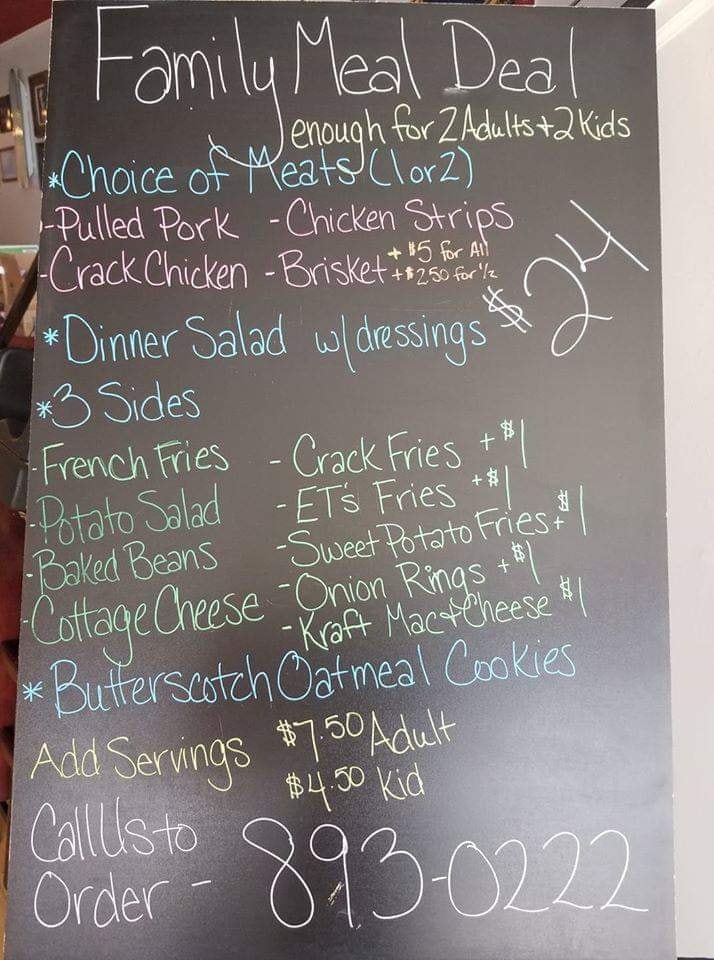 Family Meal Deal
enough for 2 Adults + 2 Kids
*Choice of Meats (1 or 2)
-Pulled Pork -Chicken Strips
-Crack Chicken -Brisket + $5 for All
+$250 for 1/2
$24
*Dinner Salad w/dressings
*3 Sides
-French Fries - Crack Fries + $1
-Potato Salad -ET's Fries + $1
-Baked Beans -Sweet Potato Fries + $1
-Cottage Cheese -Onion Rings + $1
-Kraft Mac + Cheese $1
*Butterscotch Oatmeal Cookies
Add Servings $7.50 Adult
$4.50 Kid
Call Us to
Order - 893-0222